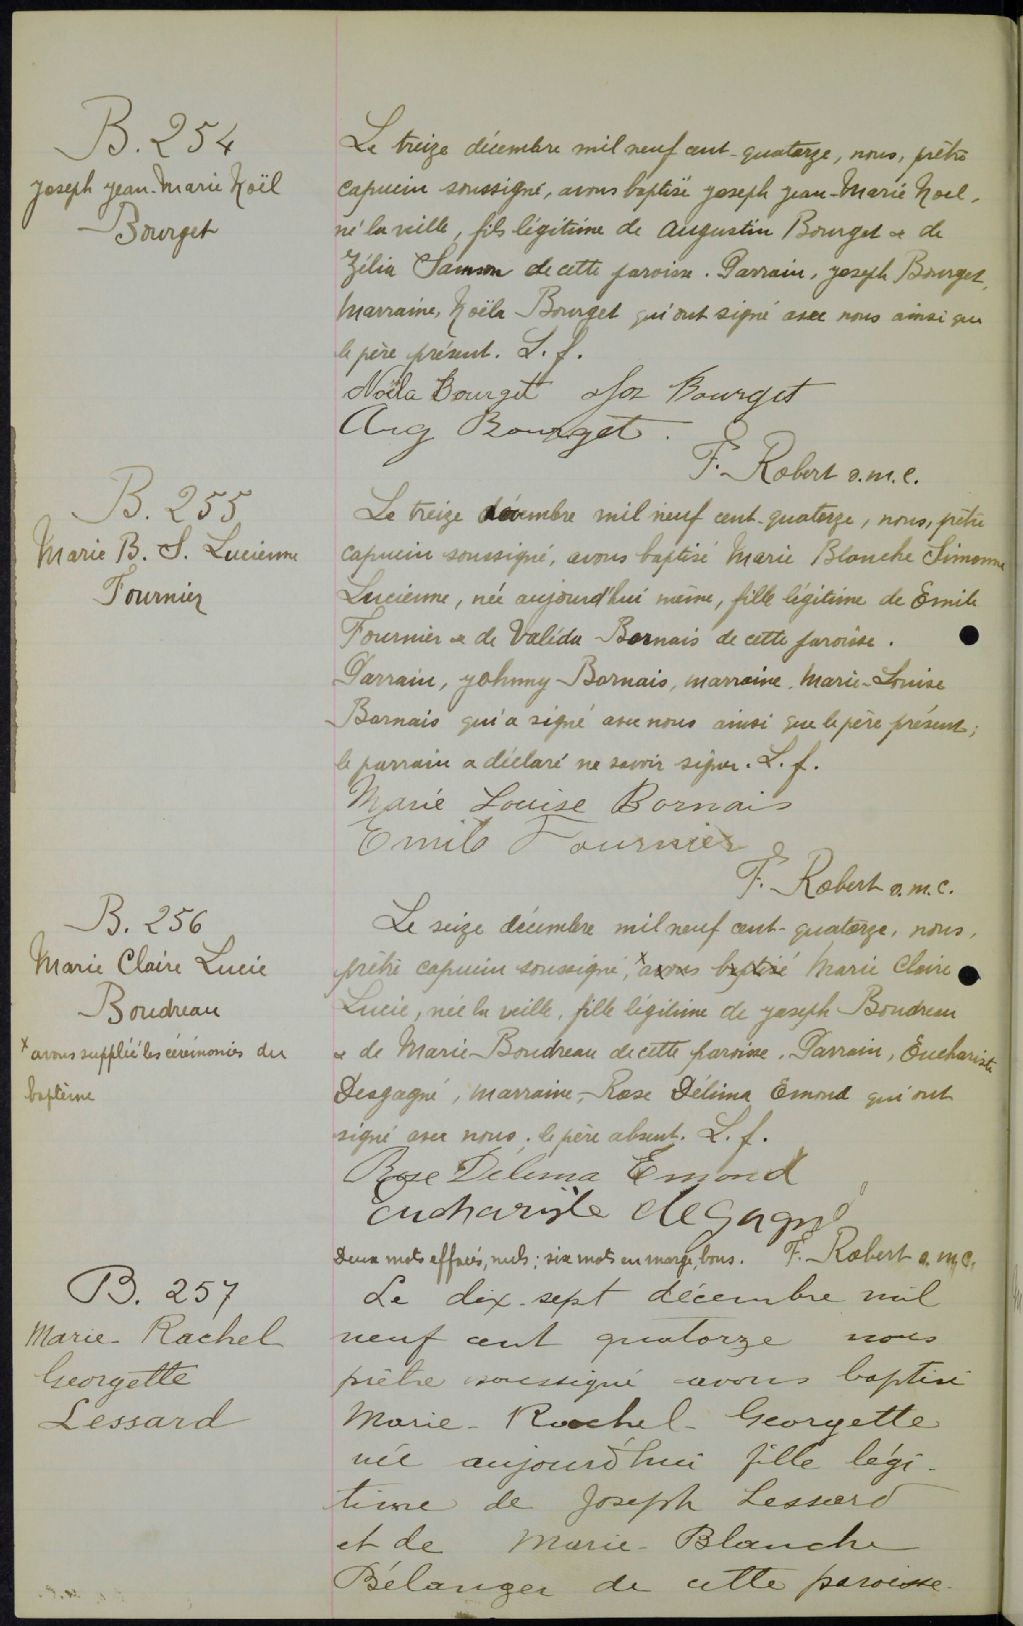 B. 254
Joseph Jean-Marie Noël
Bourget
Le treize décembre mil neuf cent-quatorze, nous, prêtre
capucin soussigné, avons baptisé Joseph Jean-Marie Noel,
né la veille, fils légitime de Augustin Bourget & de
Zélia Samson de cette paroisse. Parrain, Joseph Bourget,
marraine, Noëla Bourget qui ont signé avec nous ainsi que
le père présent. L. f.
Noëla Bourget Jos Bourget
Aug Bourget.
F. Robert o.m.c.
B. 255
Marie B. S. Lucienne
Fournier
Le treize décembre mil neuf cent-quatorze, nous, prêtre
capucin soussigné, avons baptisé Marie Blanche Simonne
Lucienne, née aujourd'hui même, fille légitime de Emile
Fournier & de Valéda Bornais de cette paroisse.
Parrain, Johnny Bornais, marraine, Marie-Louise
Bornais qui a signé avec nous ainsi que le père présent;
le parrain a déclaré ne savoir signer. L. f.
Marie Louise Bornais
Emile Fournier
F. Robert o.m.c.
B. 256
Marie Claire Lucie
Boudreau
x avons suppléé les cérémonies du
baptême
Le seize décembre mil neuf cent-quatorze, nous,
prêtre capucin soussigné, x avons baptisé Marie Claire
Lucie, née la veille, fille légitime de Joseph Boudreau
& de Marie Boudreau de cette paroisse. Parrain, Euchariste
Desgagné, marraine, Rose Délima Emond qui ont
signé avec nous; le père absent. L. f.
Rose Délima Emond
Euchariste deGagné
Deux mots effacés, nuls; six mots en marge, bons. F. Robert o.m.c.
B. 257
Marie-Rachel
Georgette
Lessard
Le dix-sept décembre mil
neuf cent quatorze nous
prêtre soussigné avons baptisé
Marie-Rachel-Georgette
née aujourd'hui fille légi-
time de Joseph Lessard
et de Marie-Blanche
Bélanger de cette paroisse.